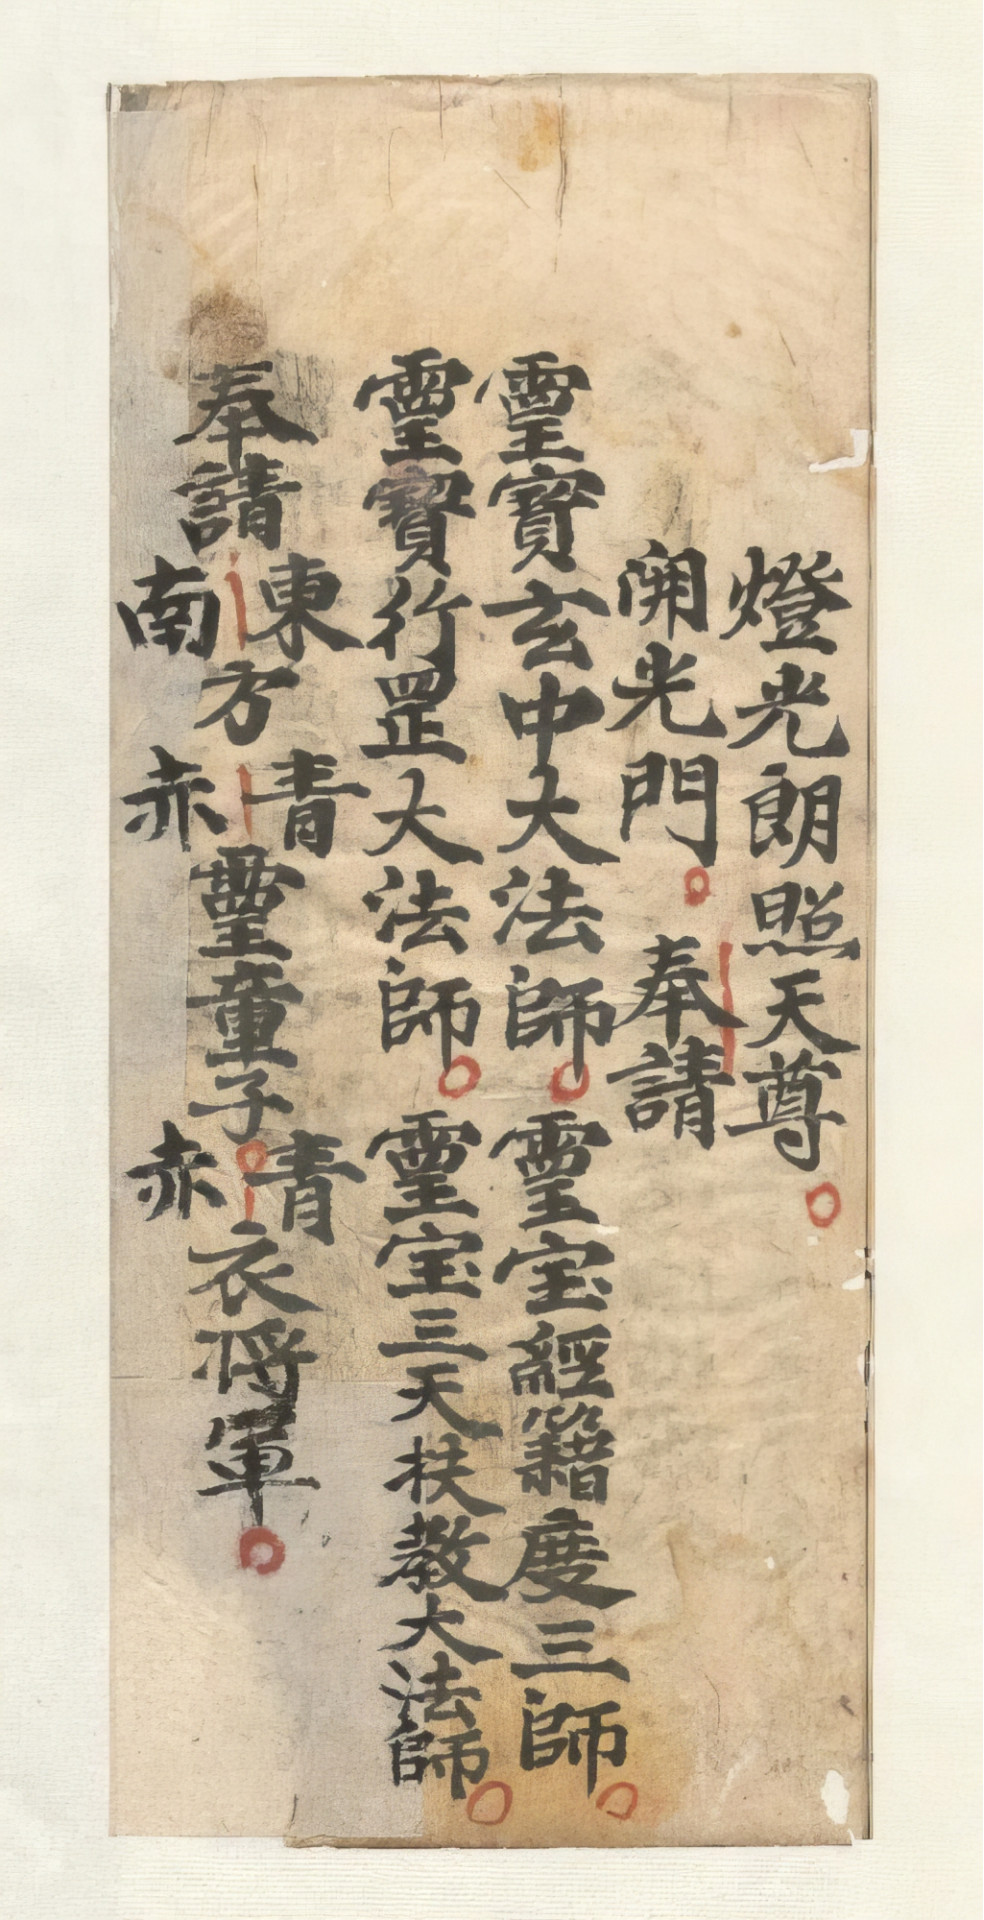 燈光朗照天尊
開光門 奉請
靈寳玄中大法師 靈宝經籍度三師
靈寳行罡大法師 靈宝三天扶教大法師
奉請東南方青赤靈童子青赤衣将軍